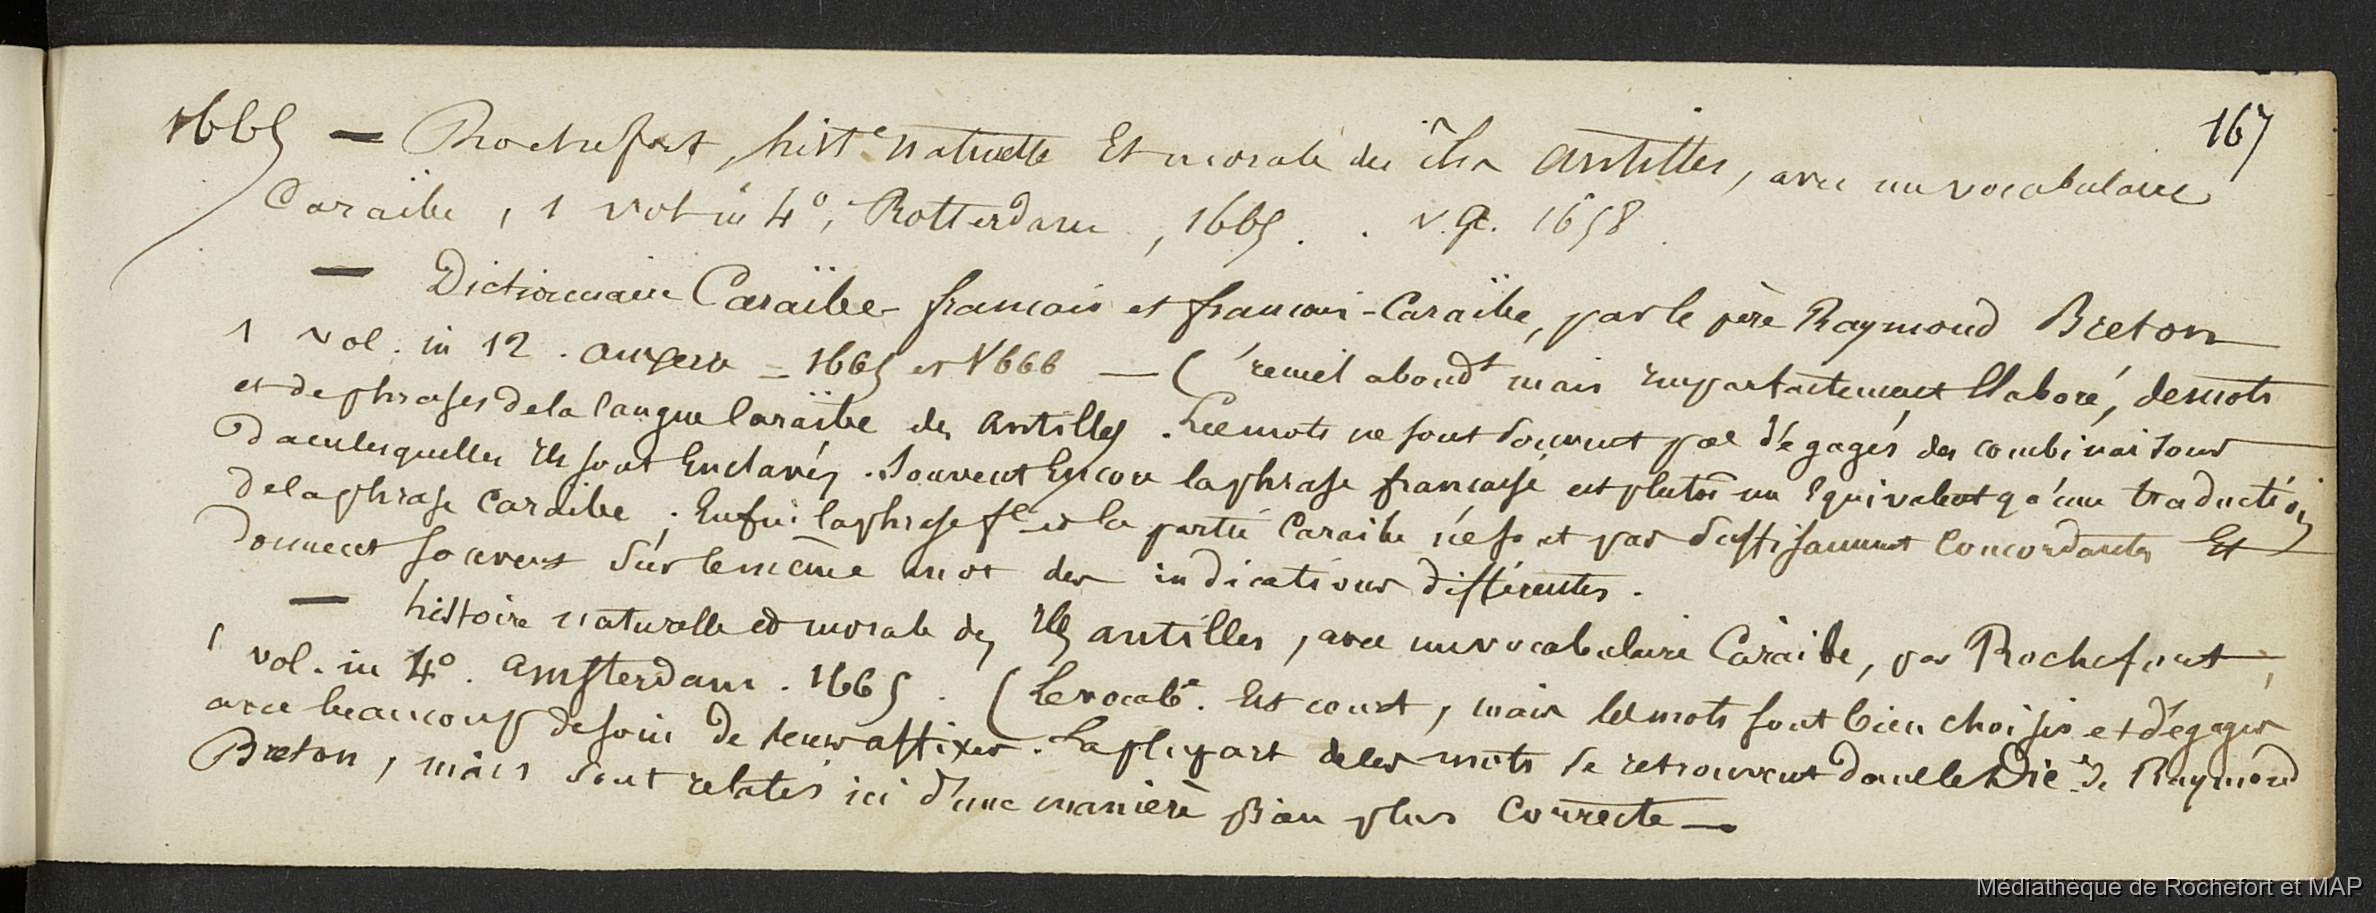 167
1665 — Rochefort, hist.e naturelle Et morale des îles antilles, avec un vocabulaire
Caraïbe, 1 vol in 4°, Rotterdam, 1665. . v. 1658.
— Dictionnaire Caraïbe-francais et francais-Caraïbe, par le père Raymond Breton
1 vol. in 12. auxerre = 1665 et 1666 — (recueil abondt mais imparfaitement Elaboré, de mots
et de phrases de la langue Caraïbe des Antilles. Les mots ne sont souvent pas dégagés des combinaisons
dans lesquelles ils sont Enclavés. Souvent Encore la phrase francaise est plutôt un Equivalent qu'une traduction
de la phrase Caraïbe; Enfin la phrase fse et la partie Caraibe ne sont pas suffisamment Concordantes Et
donnent souvent sur le même mot des indications différentes.
— histoire naturelle et morale des Iles antilles, avec un vocabulaire Caraïbe, par Rochefort,
1 vol. in 4°. amsterdam. 1665. (Le vocabre. Est court, mais les mots sont bien choisis et dégagés
avec beaucoup de soin de leurs affixes. La plupart de les mots se retrouvent dans le Dic.re de Raymond
Breton, mais sont relatés ici d'une manière bien plus correcte —
Médiathèque de Rochefort et MAP